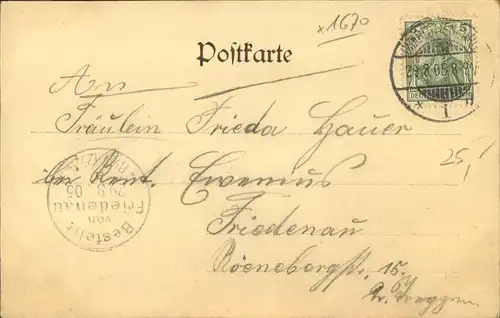 *1670
Postkarte
29.8.05.8-9N
* 1 n
An
Fräulein Frieda Hauer
25,-
bei Rent. Ewenius
Friedenau
Röenebergstr. 15.
Bestellt
von
Friedenau
29.8
05